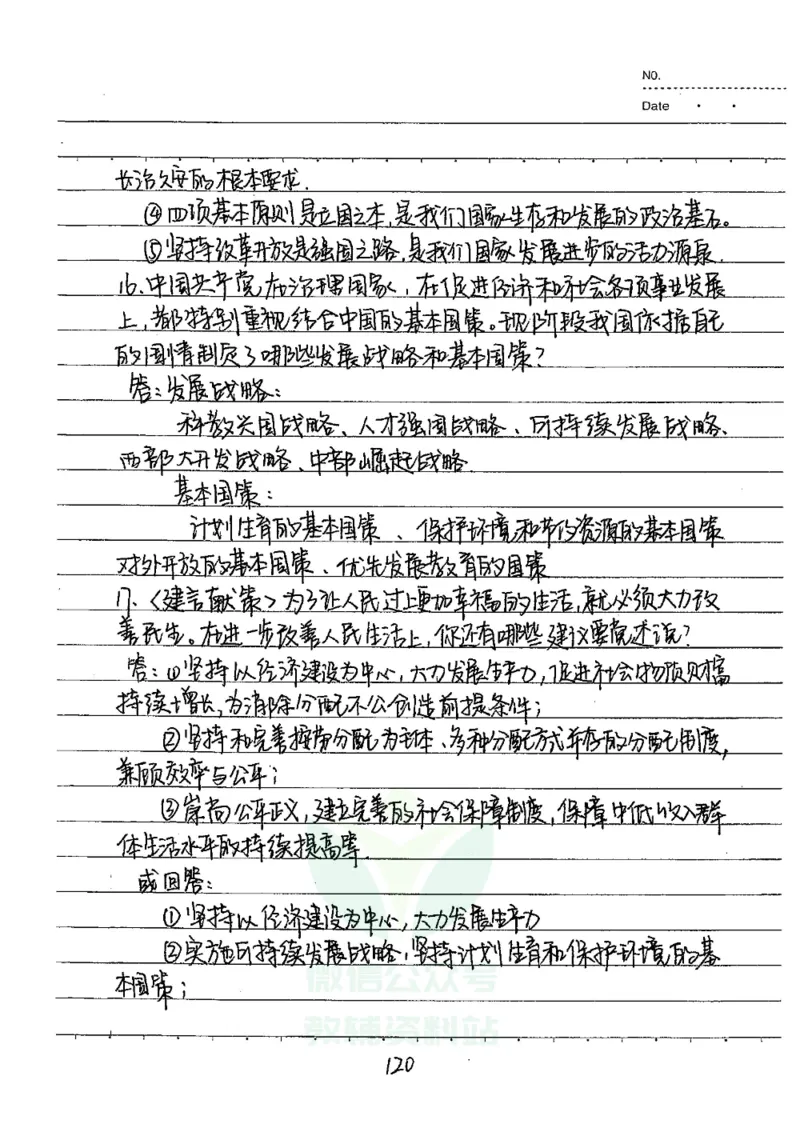 NO.
Date
长治久安的根本要求.
④四项基本原则是立国之本,是我们国家生存和发展的政治基石。
⑤坚持改革开放是强国之路,是我们国家发展进步的活力源泉.
16、中国共产党在治理国家,在促进经济和社会各项事业发展
上,都特别重视结合中国的基本国策。现阶段我国依据自己
的国情制定了哪些发展战略和基本国策?
答:发展战略:
科教兴国战略、人才强国战略、可持续发展战略、
西部大开发战略、中部崛起战略
基本国策:
计划生育的基本国策、保护环境和节约资源的基本国策
对外开放的基本国策、优先发展教育的国策
17、<建言献策>为了让人民过上更加幸福的生活,就必须大力改
善民生。在进一步改善人民生活上,你还有哪些建议要说说?
答:①坚持以经济建设为中心,大力发展生产力,促进社会物质财富
持续增长,为消除分配不公创造前提条件;
②坚持和完善按劳分配为主体、多种分配方式并存的分配制度,
兼顾效率与公平;
③崇尚公平正义,建立完善的社会保障制度,保障中低收入群
体生活水平的持续提高等.
或回答:
①坚持以经济建设为中心,大力发展生产力
②实施可持续发展战略,坚持计划生育和保护环境的基
本国策;
微信公众号
教辅资料站
120